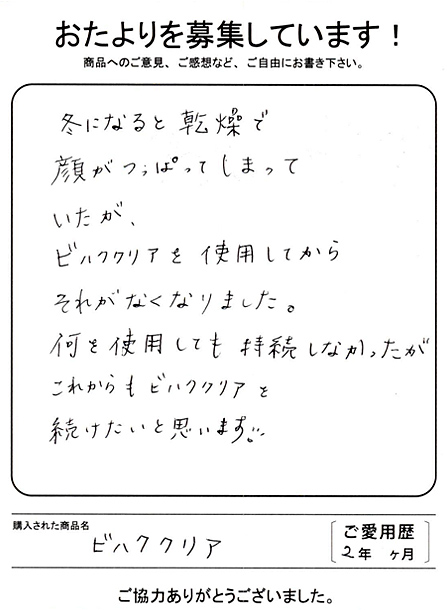 おたよりを募集しています！
商品へのご意見、ご感想など、ご自由にお書き下さい。
冬になると乾燥で
顔がつっぱってしまって
いたが、
ビハククリアを使用してから
それがなくなりました。
何を使用しても持続しなかったが
これからもビハククリアを
続けたいと思います。
購入された商品名
ビハククリア
ご愛用歴
2年 ヶ月
ご協力ありがとうございました。